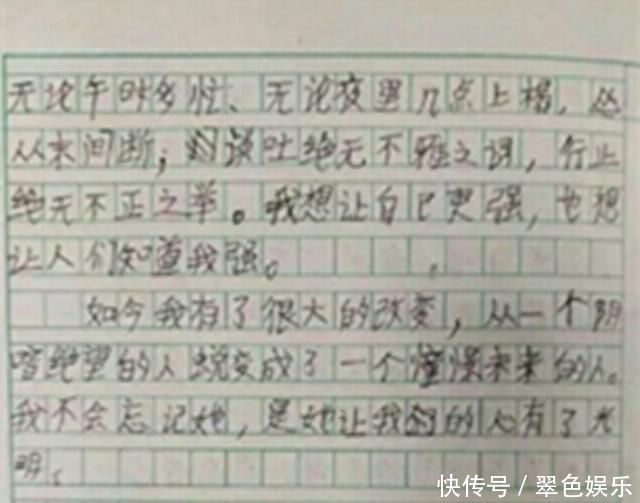 无论午时多忙、无论夜里几点上榻,
从未间断;谈吐绝无不雅之词,行止
绝无不正之举。我想让自己更强,也想
让人们知道我强。
如今我有了很大的改变,从一个阴
暗绝望的人蜕变成了一个憧憬未来的人。
我不会忘记她,是她让我的心有了光
明。
快传号/翠色娱乐